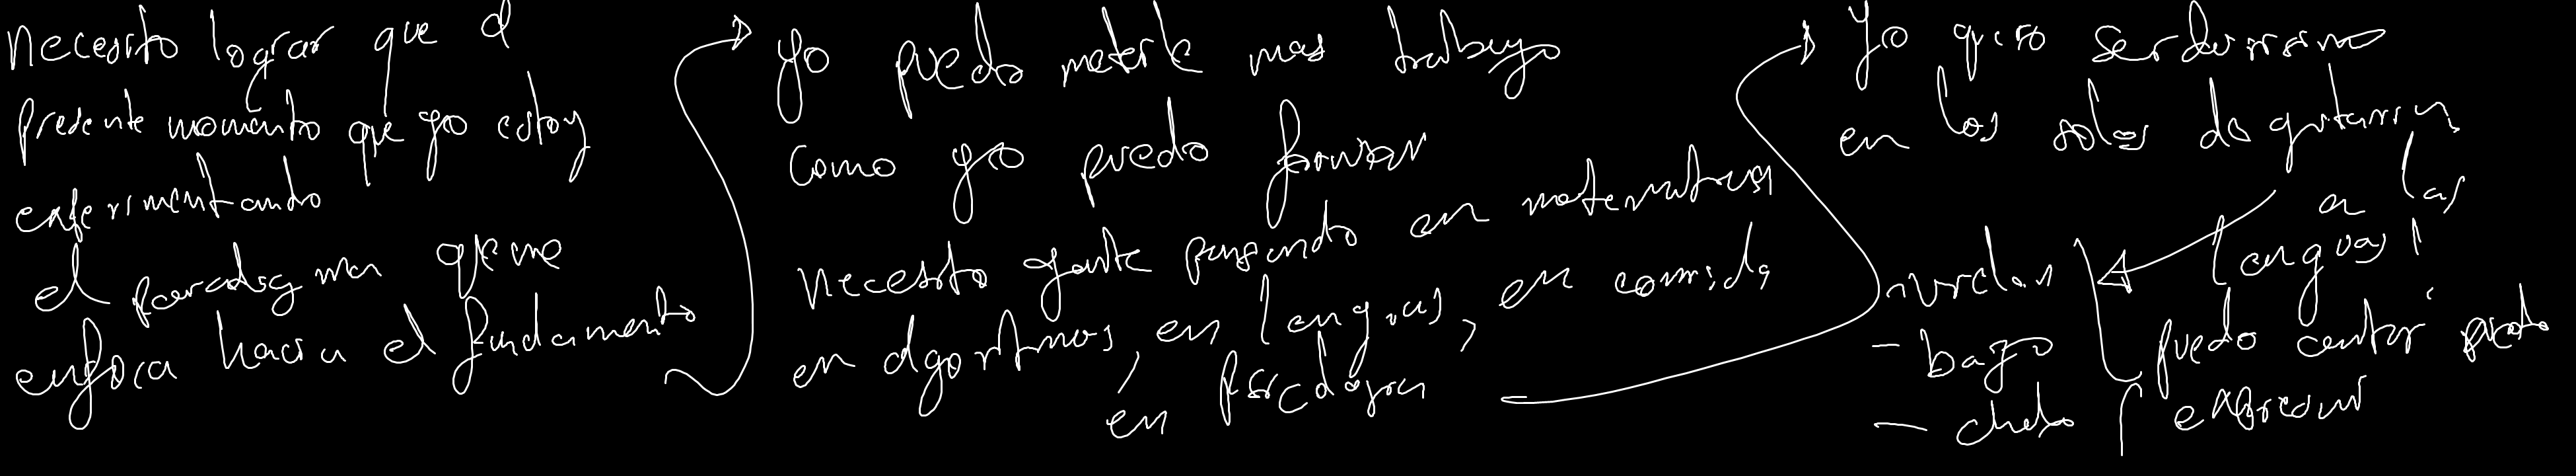 Necesito lograr que el
presente momento que yo estoy
experimentando
el paradigma que me
enfoca hacia el fundamento
yo puedo meterle mas trabajo
como yo puedo formar
necesito gente pensando en matematicas
en algoritmos, en lenguas, en comida
en psicologia
Yo quiero ser durisimo
en los solos de guitarra,
a las
lenguas
- bajo
- chelo
puedo cantar puedo
expresar